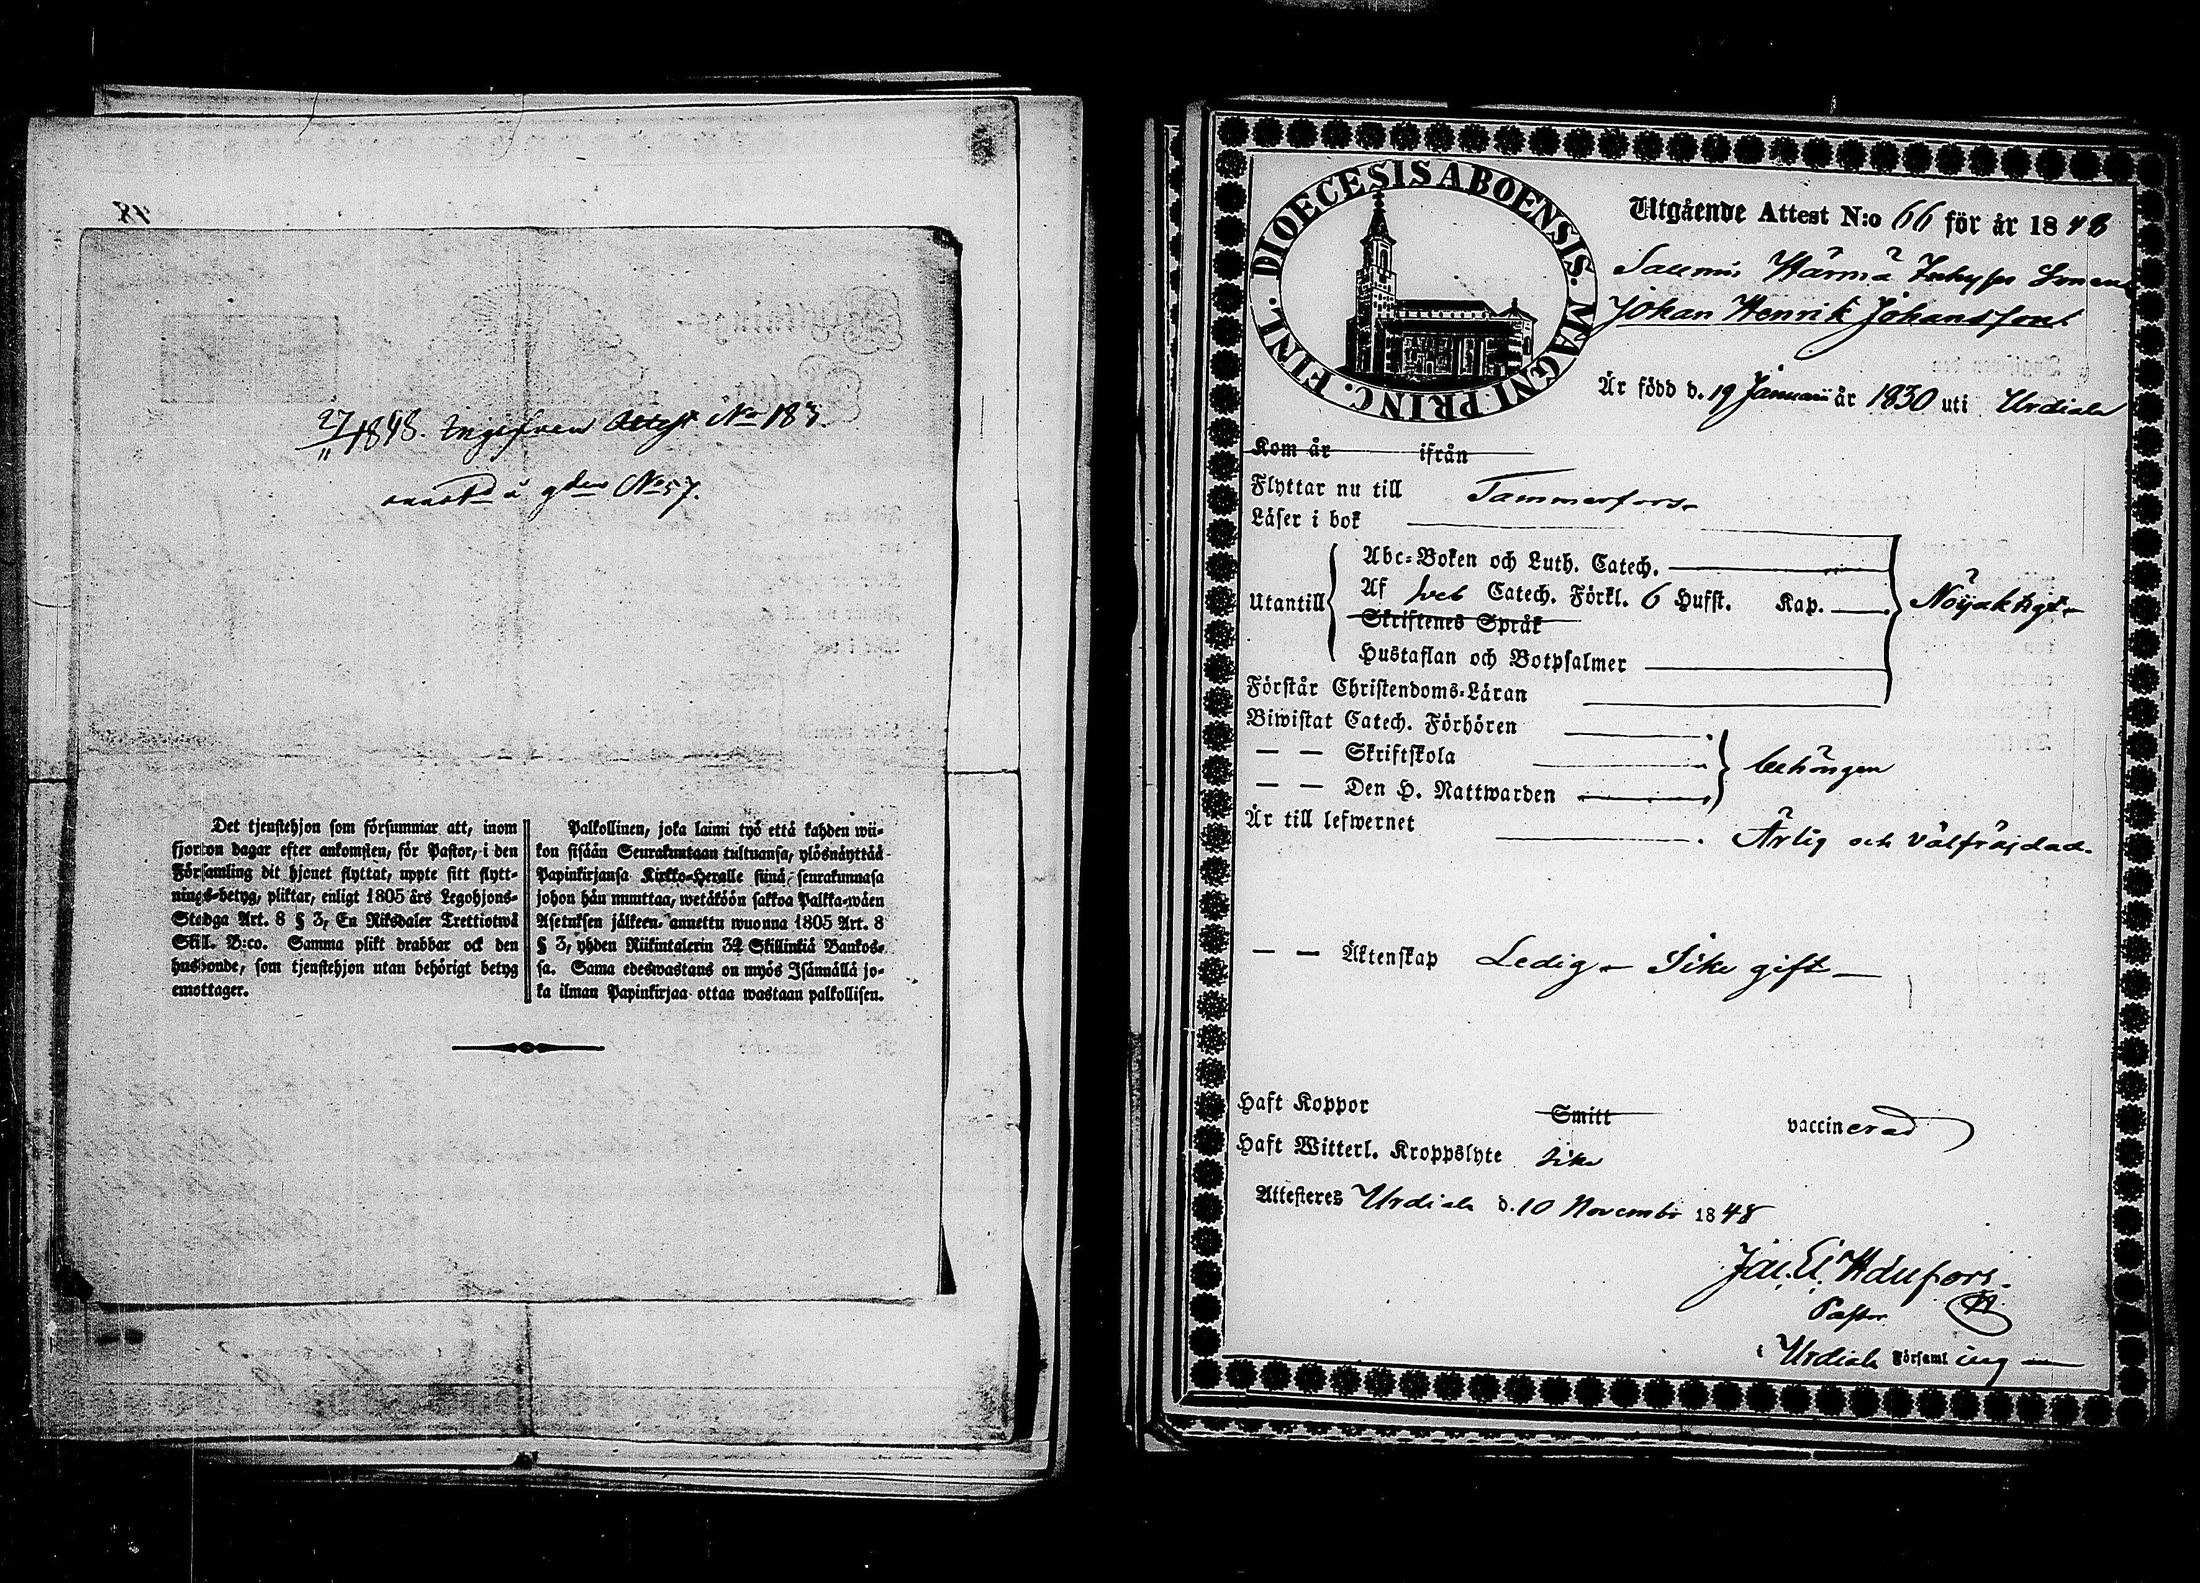 27/11 1848. Attest No 183.
annot a gden No 57.
Det tjenstehjon som försummar att, inom
fjorton dagar efter ankomsten, för Pastor, i den
Församling dit hjonet flyttat, uppte sitt flytt-
nings-betyg, pliktar, enligt 1805 års Legohjons-
Stadga Art. 8 § 3, En Riksdaler Trettiotwå
Skill. B:co. Samma plikt drabbar ock den
husbonde, som tjenstehjon utan behörigt betyg
emottager.
Palkollinen, joka laimi lyö että kahden wii-
kon sisään Seurakuntaan tultuansa, ylösnäyttää
Papinkirjansa Kirkko-Herralle siinä seurakunnasa
johon hän muuttaa, wetäköön sakkoa Palkka-wäen
Asetuksen jälkeen annettu wuonna 1805 Art. 8
§ 3, yhden Riikintalerin 32 Skillinkiä Bankos-
sa. Sama edeswastaus on myös Isännällä jo-
ka ilman Papinkirjaa ottaa wastaan palkollisen.
DIOECESIS ABOENSIS. MAGNI. PRINC. FINL.
Utgående Attest N:o 66 för år 1848
Härmä
Johan Henrik Johansson
Är född d. 19 Januarii år 1830 uti Urdiala
Kom år ifrån
Flyttar nu till Tammerfors
Läser i bok
Abc-Boken och Luth. Catech.
Utantill Af Sveb Catech. Förkl. 6 Hufst. Kap. Nöjaktigt
Skriftenes Språk
Hustaflan och Botpsalmer
Förstår Christendoms-Läran
Biwistat Catech. Förhören
— — Skriftskola behörigen
— — Den H. Nattwarden
Är till lefwernet Ärlig och välfräjdad.
— — Äktenskap Ledig – Icke gift –
Haft Koppor Smitt vaccinerad
Haft Witterl. Kroppslyte Icke
Attesteres Urdiala d. 10 November 1848
Pastor
i Urdiala Församling